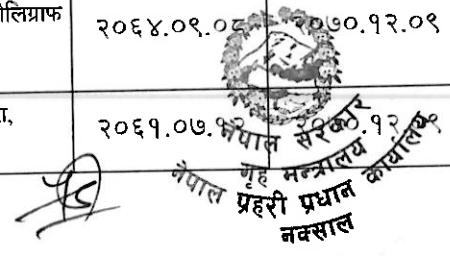 ोलिग्राफ २०६४.०९.०८ २०७०.१२.०९
ा, २०६१.०७. .१२ ९
नेपाल सरकार
गृह मन्त्रालय
नेपाल प्रहरी प्रधान कार्यालय
नक्साल